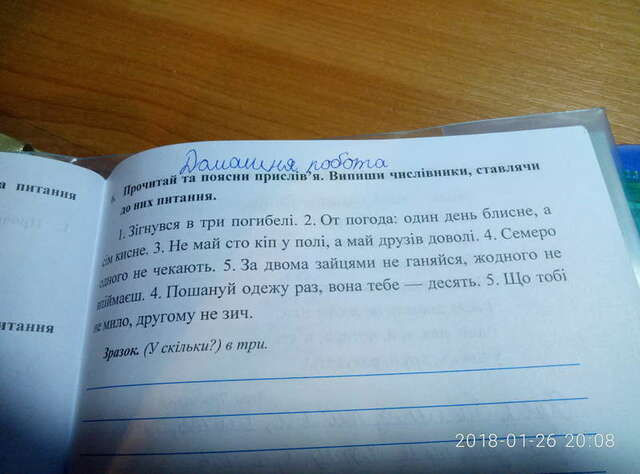 Домашня робота
а питання
Прочитай та поясни прислів’я. Випиши числівники, ставлячи
до них питання.
1. Зігнувся в три погибелі. 2. От погода: один день блисне, а
сім кисне. 3. Не май сто кіп у полі, а май друзів доволі. 4. Семеро
одного не чекають. 5. За двома зайцями не ганяйся, жодного не
впіймаєш. 4. Пошануй одежу раз, вона тебе — десять. 5. Що тобі
не мило, другому не зич.
итання
Зразок. (У скільки?) в три.
2018-01-26 20:08